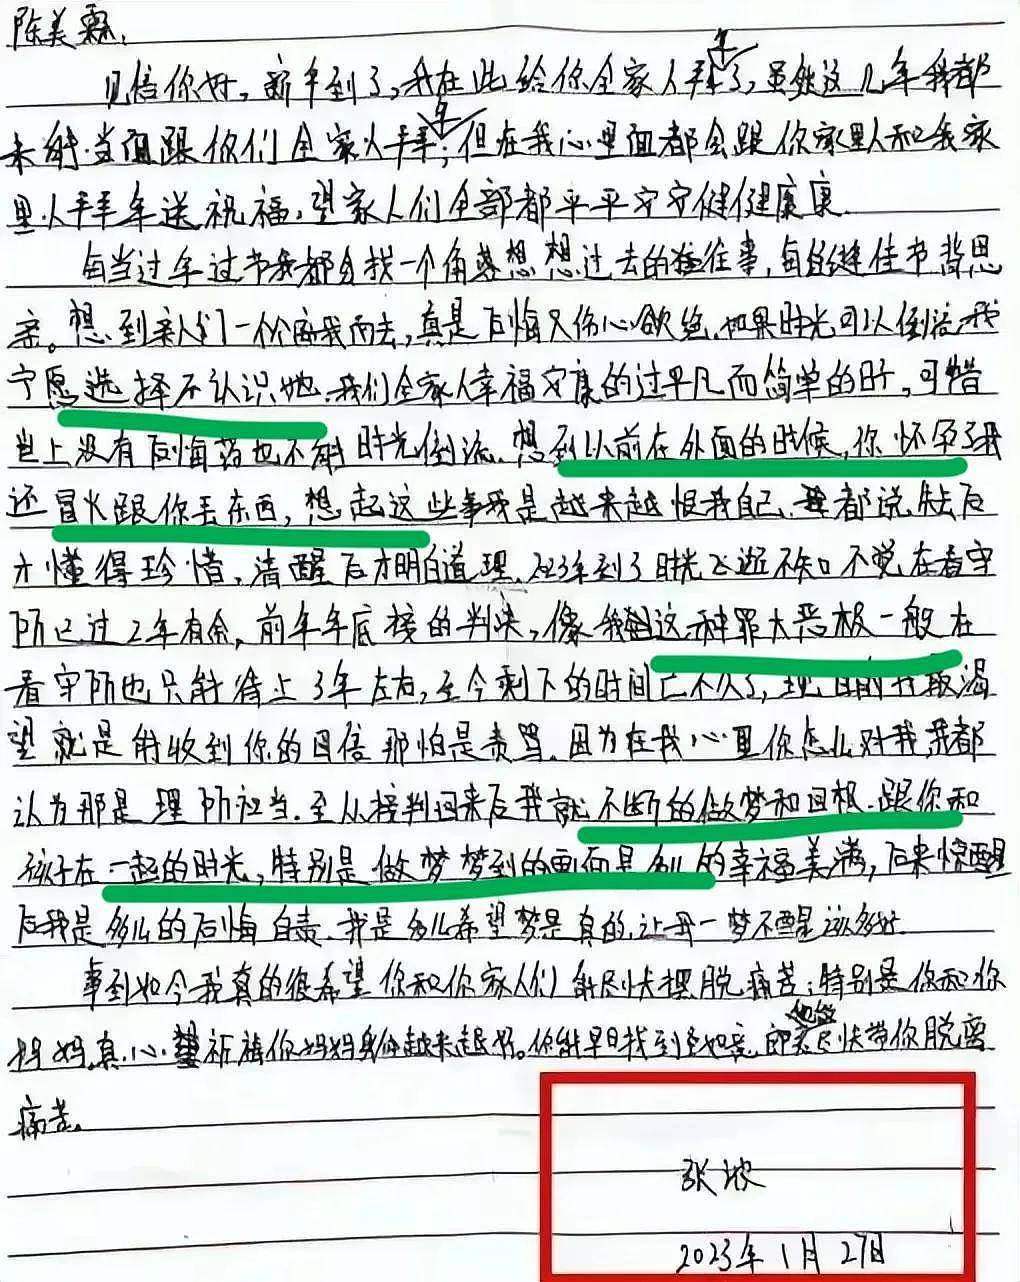 陈美霖:
见信你好,新年到了,我在此给你全家人拜年了,虽然这几年我都
未能当面跟你们全家人拜年,但在我心里面都会跟你家里人和我家
里人拜年送祝福,望家人们全部都平平安安健健康康
每当过年过节我都会找一个角落想想过去的往事,每逢佳节背思
亲。想到亲人们一个个离我而去,真是后悔又伤心欲绝,如果时光可以倒流,我
宁愿选择不认识她,我们全家人幸福安康的过平凡而简单的日子,可惜
世上没有后悔药也不能时光倒流,想到以前在外面的时候,你怀孕了我
还冒火跟你丢东西,想起这些事我是越来越恨我自己,我都说失去后
才懂得珍惜,清醒后才明白道理,时光飞逝不知不觉在看守
所已过2年有余,前年年底接的判决,像我这种罪大恶极一般在
看守所也只能待上3年左右,至今剩下的时间已不久了,现目前我最渴
望就是能收到你的回信那怕是责骂,因为在我心里你怎么对我我都
认为那是理所应当,至从接判回来后我就不断的做梦和回想,跟你和
孩子在一起的时光,特别是做梦梦到的画面是多么的幸福美满,后来惊醒
后我是多么的后悔自责,我是多么希望梦是真的,让我一梦不醒该多好
事到如今我真的很希望你和你家人们能尽快摆脱痛苦;特别是你和你
妈妈,真心望祈祷你妈妈身体越来越好。你能早日找到,即他能尽快带你脱离
痛苦。
张波
2023年1月27日